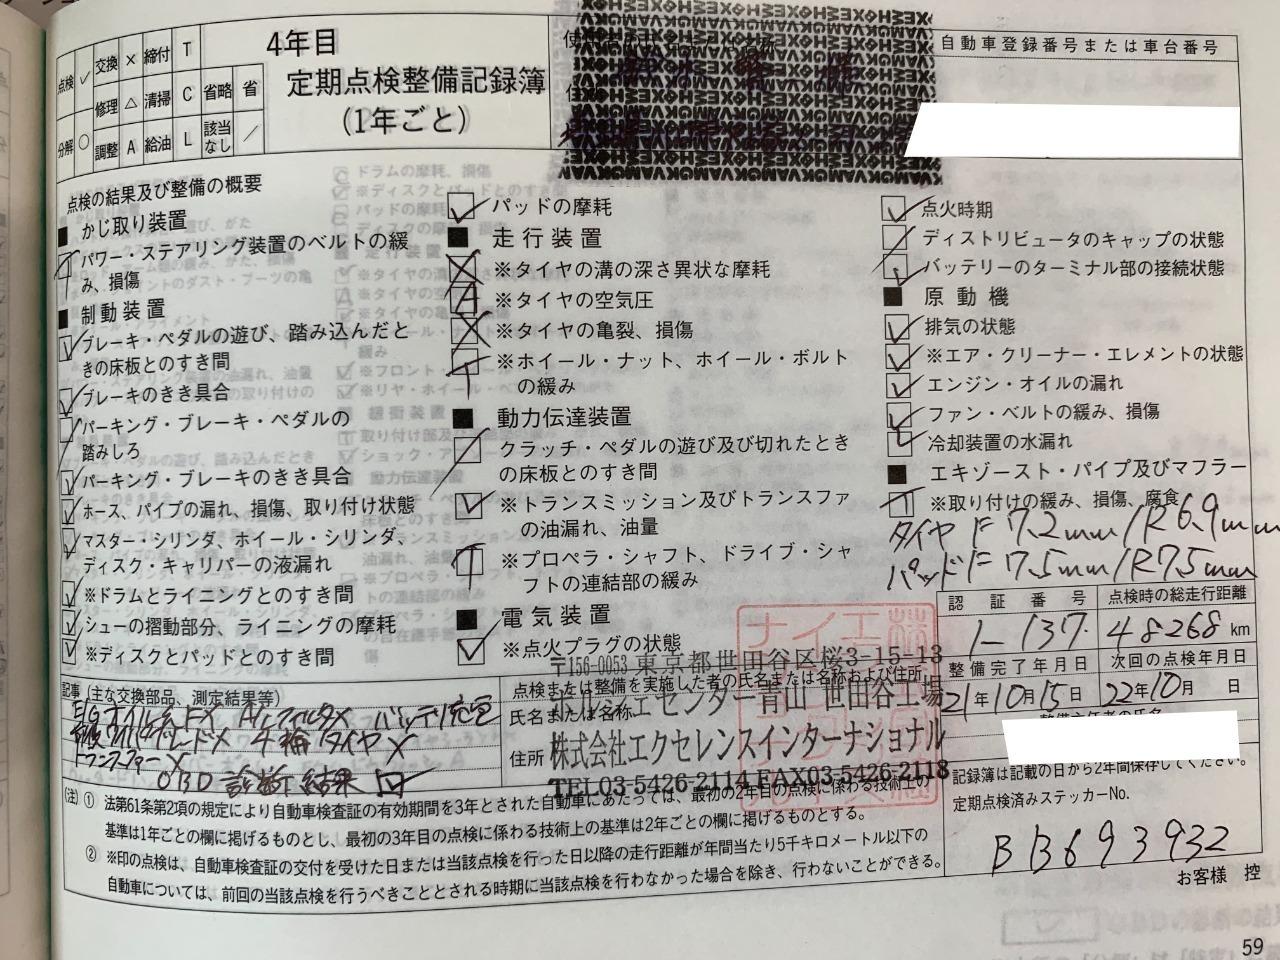 点検 ✓ 交換 × 締付 T
修理 △ 清掃 C 省略 省
分解 ○ 調整 A 給油 L 該当なし ／
4年目
定期点検整備記録簿
(1年ごと)
自動車登録番号または車台番号
点検の結果及び整備の概要
■ かじ取り装置
パワー・ステアリング装置のベルトの緩
み、損傷
■ 制動装置
ブレーキ・ペダルの遊び、踏み込んだと
きの床板とのすき間
ブレーキのきき具合
パーキング・ブレーキ・ペダルの
踏みしろ
パーキング・ブレーキのきき具合
ホース、パイプの漏れ、損傷、取り付け状態
マスター・シリンダ、ホイール・シリンダ、
ディスク・キャリパーの液漏れ
※ドラムとライニングとのすき間
シューの摺動部分、ライニングの摩耗
※ディスクとパッドとのすき間
パッドの摩耗
■ 走行装置
※タイヤの溝の深さ異状な摩耗
※タイヤの空気圧
※タイヤの亀裂、損傷
※ホイール・ナット、ホイール・ボルト
の緩み
■ 動力伝達装置
クラッチ・ペダルの遊び及び切れたとき
の床板とのすき間
※トランスミッション及びトランスファ
の油漏れ、油量
※プロペラ・シャフト、ドライブ・シャ
フトの連結部の緩み
■ 電気装置
※点火プラグの状態
点火時期
ディストリビュータのキャップの状態
バッテリーのターミナル部の接続状態
■ 原動機
排気の状態
※エア・クリーナー・エレメントの状態
エンジン・オイルの漏れ
ファン・ベルトの緩み、損傷
冷却装置の水漏れ
■ エキゾースト・パイプ及びマフラー
※取り付けの緩み、損傷、腐食
タイヤ F 7.2mm/R 6.9mm
パッド F 7.5mm/R 7.5mm
認証番号 点検時の総走行距離
1-137 48268 km
整備完了年月日 次回の点検年月日
21年10月15日 22年10月 日
記事 (主な交換部品、測定結果等)
4輪タイヤ×
OBD 診断結果 回
点検または整備を実施した者の氏名または名称および住所
氏名または名称
住所
〒156-0053 東京都世田谷区桜3-15-13
ポルシェセンター青山 世田谷工場
株式会社エクセレンスインターナショナル
TEL03-5426-2114 FAX03-5426-2118
記録簿は記載の日から2年間保存してください。
定期点検済みステッカーNo.
BB693932
(注) ① 法第61条第2項の規定により自動車検査証の有効期間を3年とされた自動車にあたっては、最初の2年目の点検に係わる技術上の
基準は1年ごとの欄に掲げるものとし、最初の3年目の点検に係わる技術上の基準は2年ごとの欄に掲げるものとする。
② ※印の点検は、自動車検査証の交付を受けた日または当該点検を行った日以降の走行距離が年間当たり5千キロメートル以下の
自動車については、前回の当該点検を行うべきこととされる時期に当該点検を行わなかった場合を除き、行わないことができる。
お客様 控
59